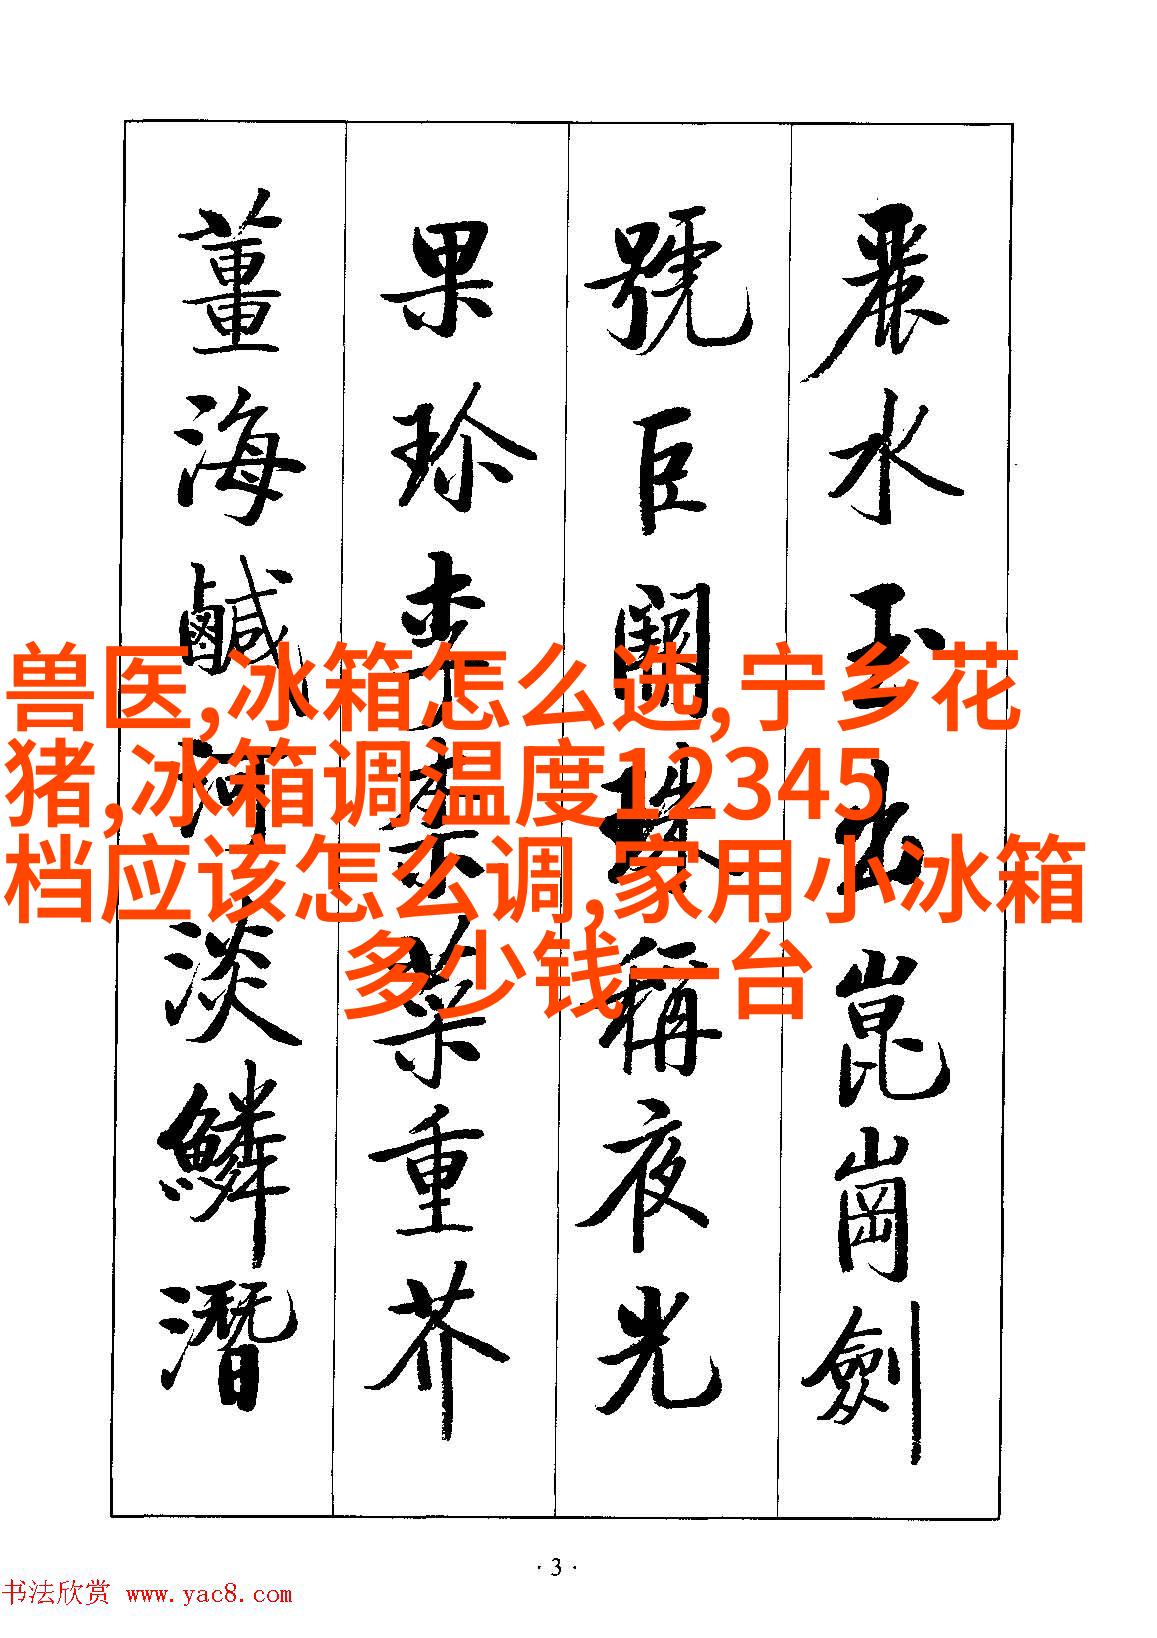 麗水玉出崑崗劍
號巨闕珠稱夜光
果珍李柰菜重芥
薑海鹹河淡鱗潛
兽医,冰箱怎么选,宁乡花
猪,冰箱调温度12345
档应该怎么调,家用小冰箱
多少钱一台
·3·
书法欣赏 www.yac8.com